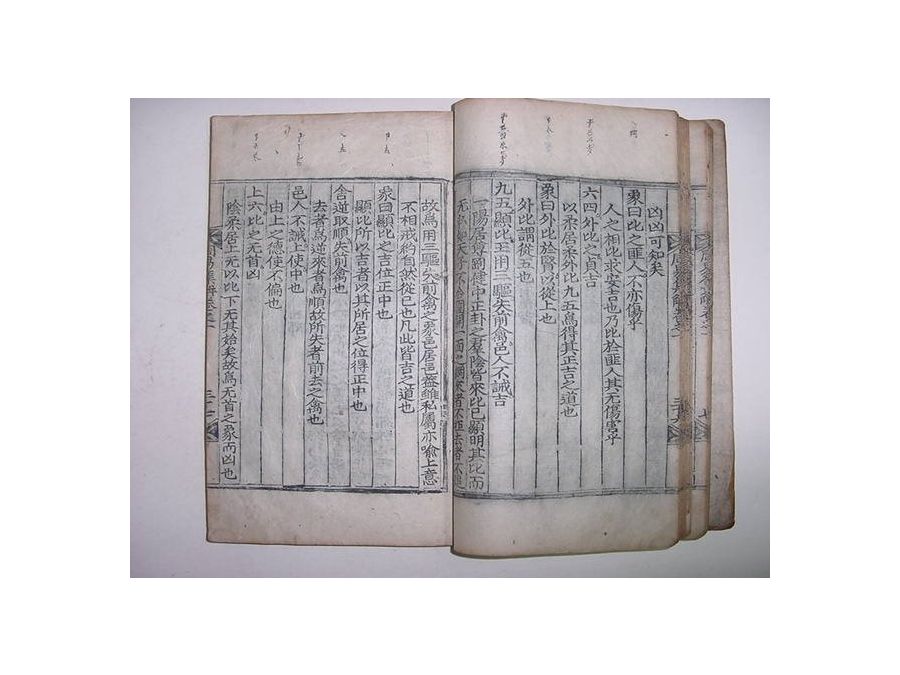 凶可知矣
象曰比之匪人不亦傷乎
人之相比求安吉也乃比於匪人其无傷害乎
六四外比之貞吉
以柔居柔外比九五爲得其正吉之道也
象曰外比於賢以從上也
外比謂從五也
九五顯比王用三驅失前禽邑人不誡吉
一陽居尊剛健中正卦之羣陰皆來比己顯明其比而
无私如天子不合圍開一面之網來者不拒去者不追
故爲用三驅失前禽之象邑居邑雖私屬亦喩上意
不相戒飭自然從己也凡此皆吉之道也
象曰顯比之吉位正中也
顯比所以吉者以其所居之位得正中也
舍逆取順失前禽也
去者爲逆來者爲順故所失者前去之禽也
邑人不誡上使中也
由上之德使不偏也
上六比之无首凶
陰柔居上无以比下无其始矣故爲无首之象而凶也